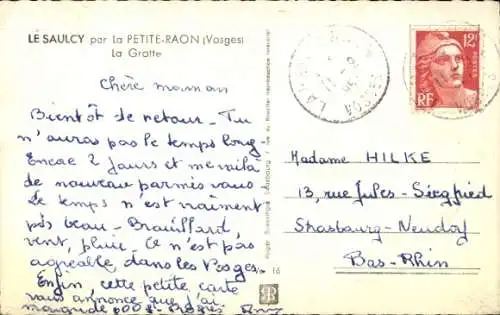 LE SAULCY par La PETITE-RAON (Vosges)
La Grotte
Chère maman
Bientôt de retour - Tu
n'auras pas le temps long -
Encore 2 jours et me voilà
de nouveau parmis vous
Le temps n'est vraiment
pas beau - Brouillard,
vent, pluie. Ce n'est pas
agréable dans les Vosges.
Enfin, cette petite carte
vous annonce que j'ai
16
12F
POSTES
RF
Madame HILKE
13, rue Jules-Siegfried
Strasbourg-Neudorf
Bas-Rhin